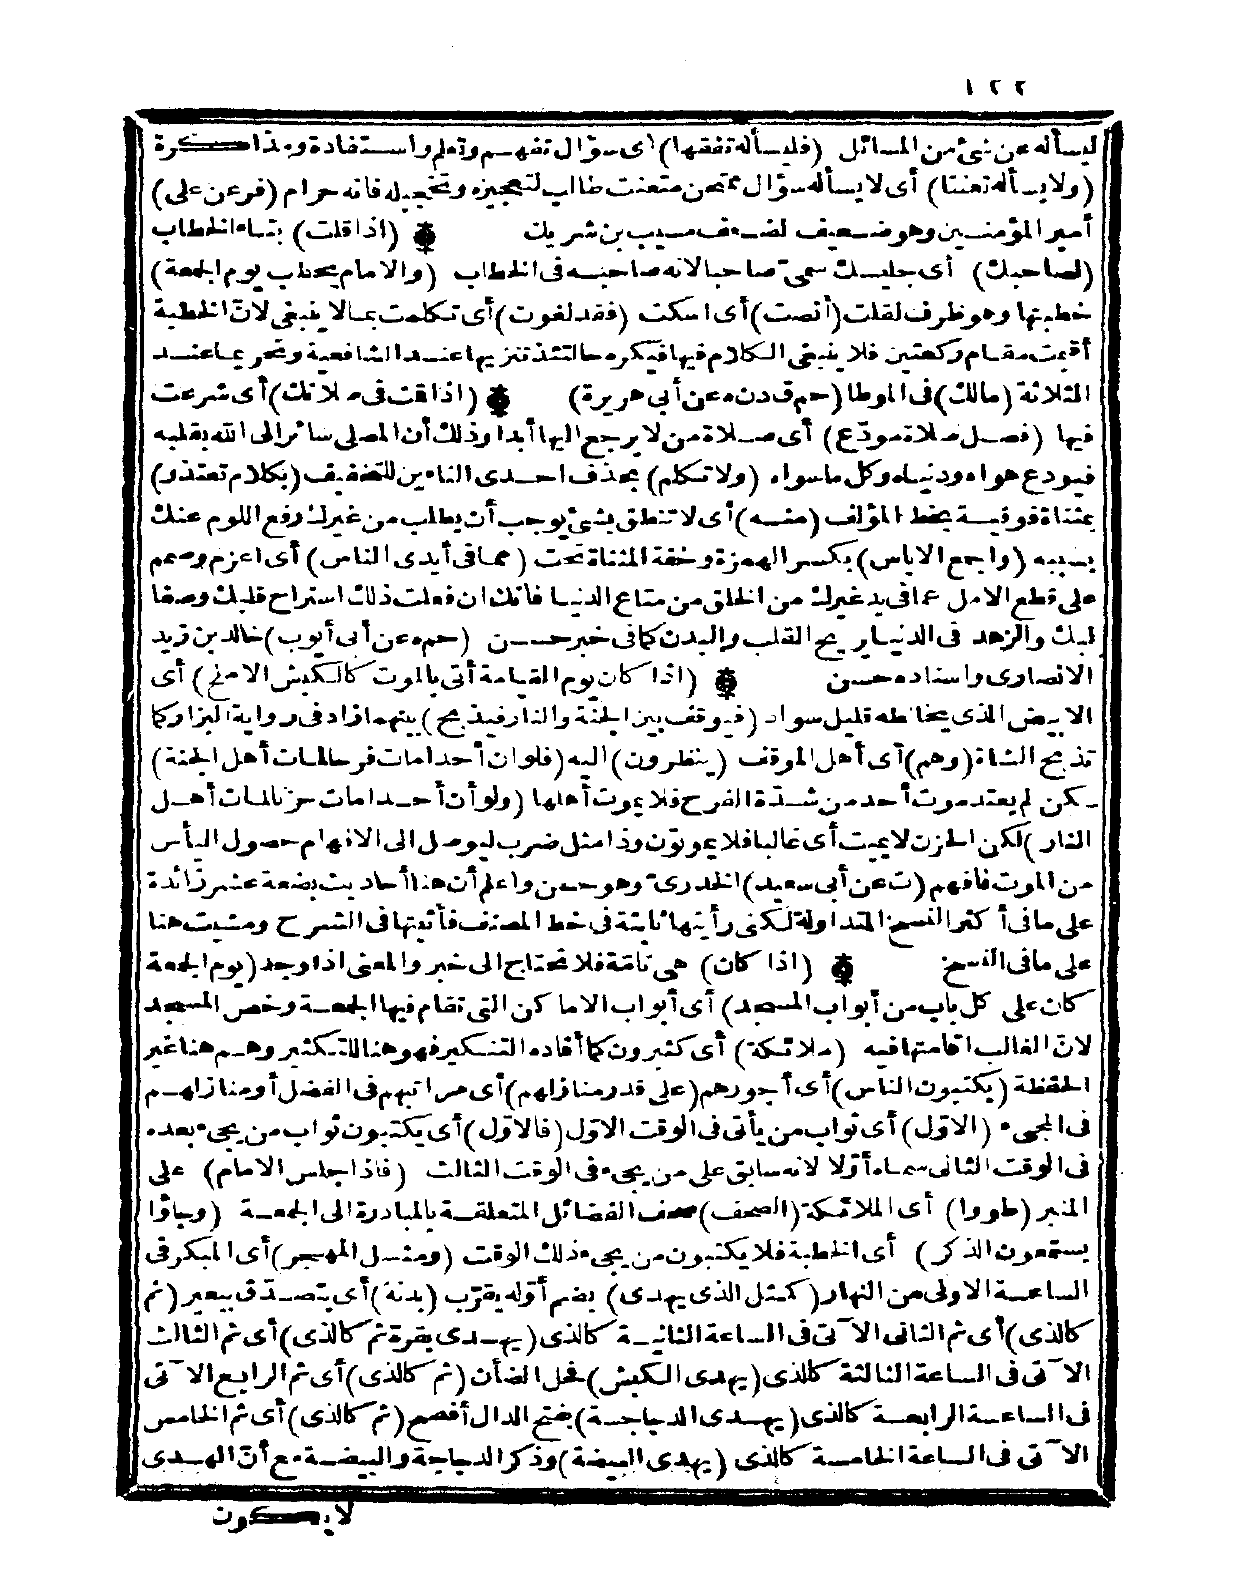 ١٢٢
ليسأله عن شئ من المسائل (فليسأله تفقها) أى سؤال تفهم وتعلم واستفادة ومذاكرة
(ولا يسأله تعنتا) أى لا يسأله سؤال ممتحن متعنت طالب لتعجيزه وتخجيله فانه حرام (فر عن على)
أمير المؤمنين وهو ضعيف لضعف مسيب بن شريك (اذا قلت) بتاء الخطاب
(لصاحبك) أى جليسك سمى صاحبا لانه صاحبه فى الخطاب (والامام يخطب يوم الجمعة)
خطبتها وهو ظرف لقلت (أنصت) أى اسكت (فقد لغوت) أى تكلمت بمالا ينبغى لان الخطبة
أقيمت مقام ركعتين فلا ينبغى الكلام فيها فيكره حالتئذ تنزيها عند الشافعية وتحريما عند
الثلاثة (مالك) فى الموطا (حم ق د ن ه عن أبى هريرة) (اذا قت فى صلاتك) أى شرعت
فيها (فصل صلاة مودّع) أى صلاة من لا يرجع اليها أبدا وذلك أن المصلى سائر الى الله بقلبه
فيودع هواه ودنياه وكل ما سواه (ولا تكلم) بحذف احدى التاءين للتخفيف (بكلام تعتذر)
بمثناة فوقية بخط المؤلف (منه) أى لا تنطق بشئ يوجب أن يطلب من غيرك رفع اللوم عنك
بسببه (واجمع الاياس) بكسر الهمزة وخفة المثناة تحت (مما فى أيدى الناس) أى اعزم وصمم
على قطع الامل عما فى يد غيرك من الخلق من متاع الدنيا فانك ان فعلت ذلك استراح قلبك وصفا
لبك والزهد فى الدنيا يريح القلب والبدن كما فى خبر حسن (حم ه عن أبى أيوب) خالد بن زيد
الانصارى واسناده حسن (اذا كان يوم القيامة أتى بالموت كالكبش الاملح) أى
الابيض الذى يخالطه قليل سواد (فيوقف بين الجنة والنار فيذبح) بينهما زاد فى رواية البزار كما
تذبح الشاة (وهم) أى أهل الموقف (ينظرون) اليه (فلوان أحدا مات فرحا لمات أهل الجنة)
لكن لم يعتد موت أحد من شدة الفرح فلا يموت أهلها (ولو أن أحدا مات حزنا لمات أهل
النار) لكن الحزن لا يميت أى غالبا فلا يموتون وذا مثل ضرب ليوصل الى الافهام حصول اليأس
من الموت فافهم (ت عن أبى سعيد) الخدرى وهو حسن واعلم أن هنا أحاديث بضعة عشر زائدة
على ما فى أكثر النسخ المتداولة لكنى رأيتها ثابتة فى خط المصنف فأثبتها فى الشرح ومشيت هنا
على ما فى النسخ (اذا كان) هى تامّة فلا تحتاج الى خبر والمعنى اذا وجد (يوم الجمعة
كان على كل باب من أبواب المسجد) أى أبواب الاماكن التى تقام فيها الجمعة وخص المسجد
لانّ الغالب اقامتها فيه (ملائكة) أى كثيرون كما أفاده التنكير فهو هنا للتكثير وهم هنا غير
الحفظة (يكتبون الناس) أى أجورهم (على قدر منازلهم) أى مراتبهم فى الفضل أو منازلهم
فى المجىء (الاوّل) أى ثواب من يأتى فى الوقت الاوّل (فالاوّل) أى يكتبون ثواب من يجىء بعده
فى الوقت الثانى سماه أوّلا لانه سابق على من يجىء فى الوقت الثالث (فاذا جلس الامام) على
المنبر (طووا) أى الملائكة (الصحف) صحف الفضائل المتعلقة بالمبادرة الى الجمعة (وجاؤا
يستمعون الذكر) أى الخطبة فلا يكتبون من يجىء ذلك الوقت (ومثل المهجر) أى المبكر فى
الساعة الاولى من النهار (كمثل الذى يهدى) بضم أوّله يقرّب (بدنة) أى يتصدق ببعير (ثم
كالذى) أى ثم الثانى الآتى فى الساعة الثانية كالذى (يهدى بقرة ثم كالذى) أى ثم الثالث
الآتى فى الساعة الثالثة كالذى (يهدى الكبش) فحل الضأن (ثم كالذى) أى ثم الرابع الآتى
فى الساعة الرابعة كالذى (يهدى الدجاجة) بفتح الدال أفصح (ثم كالذى) أى ثم الخامس
الآتى فى الساعة الخامسة كالذى (يهدى البيضة) وذكر الدجاجة والبيضة مع أنّ الهدى
لا يكون